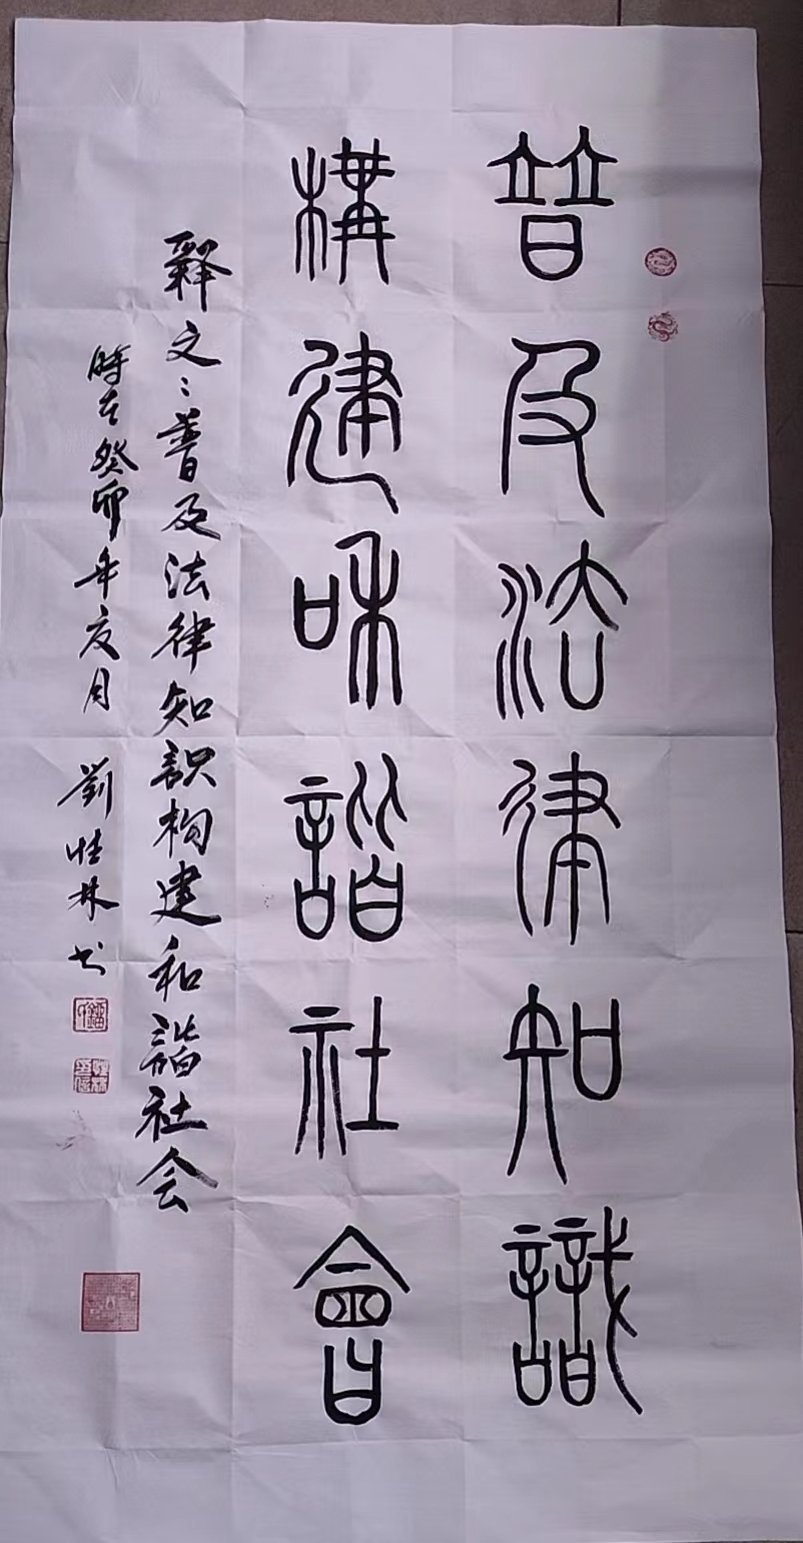 普及法律知識
構建和諧社會
釋文：普及法律知识构建和諧社会
時在癸卯年夏月 劉 林书